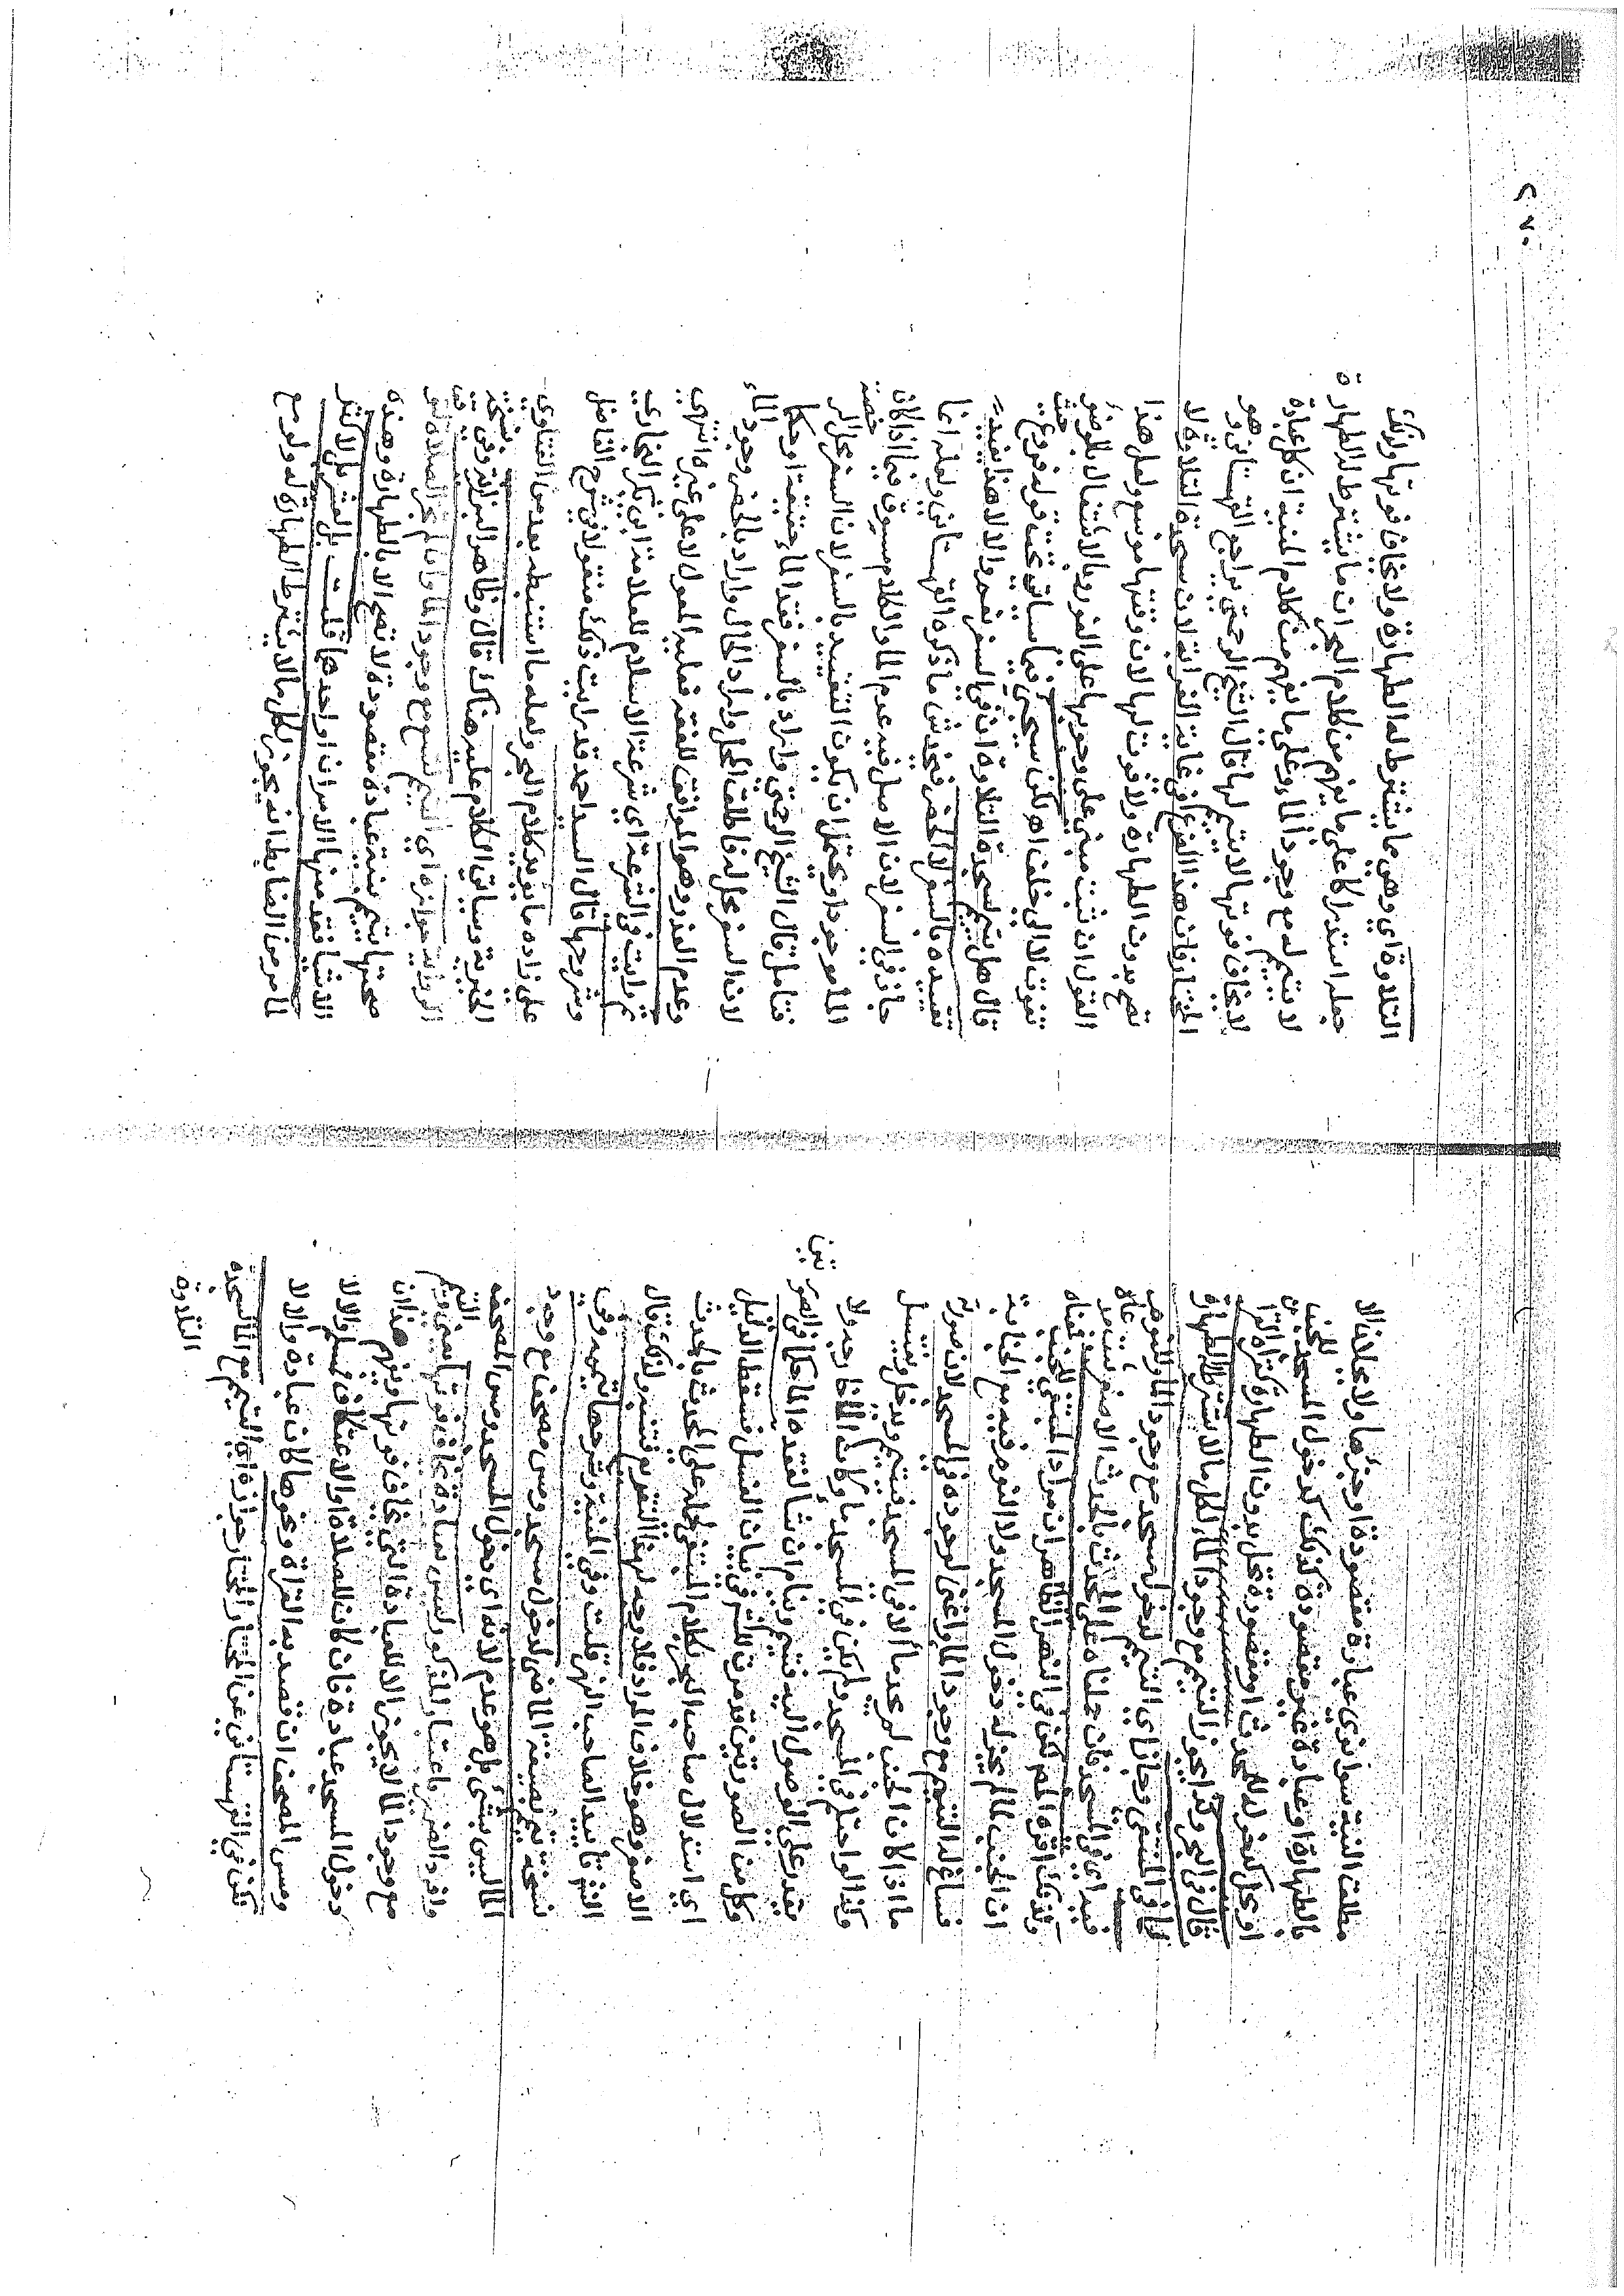 مطلقت النية سوا نوى عبادة مقصودة او جزئها ولا يحل الا
بالطهارة او عبادة غير مقصودة كذلك كدخول المسجد للجنب
او يحل كدخوله للمحدث او مقصورة تحل بدون الطهارة كقراءة القران
قال في البحر وكذا يجوز التيمم مع وجود الماء لكل ما لا تشترط له الطهارة
لما في المبتغي وجاز اي التيمم لدخول مسجد مع وجود الماء وللنوم
فيه اي في المسجد فان حملناه على المحدث بالحدث الاصغر تم مدعاه
ولذا اقره المص لكن في النهر الظاهر ان مراد المبتغي الجنب
ان الجنب لما لم يجز له دخول المسجد ولا النوم فيه مع الجنابة
فساغ له التيمم مع وجود الماء اعني لوجوده في المسجد لان صورته
ما اذا كان الجنب لم يجد ماء الا في المسجد فيتيمم ويدخل ويغتسل
وكذا لو احتلم في المسجد ولم يكن في المسجد ماء وكان الماء خارجه ولا
يقدر على الوصول اليه فيتيمم وينام ان شاء لفقده الماء حكما في الصور
وكل من الصورتين قد مرت للمص في بيان الغسل فسقط الدليل
اي استدلال صاحب البحر بكلام المبتغي بحمله على المحدث بالحدث
الاصغر وهو خلاف المراد فلا وجه لهذا التقرير فتنبه ولذلك قال
تاييد لصاحب النهر قلت وفي المنية وشرحها تيممه وفي
نسخة تيمم بصيغة الماضي لدخول مسجد ومس مصحف مع وجود
الماء ليس بشيء بل هو عدم لانه اي دخول المسجد ومس المصحف
وافرد الضمير باعتبار المذكور ليس بعبادة يخاف فوتها يعني والتيمم
مع وجود الماء لا يجوز الا للعبادة التي يخاف فوتها ويفهم هذا ان
دخول المسجد عبادة فان كان للصلاة او لاعتكاف فمسلم والا لا
ومس المصحف ان قصد به القراءة ونحوها كان عبادة والا لا
لكن في القهستاني عن المختار المختار جوازه اي التيمم مع الماء لسجدة
التلاوة
التلاوة اي وهي ما يشترط له الطهارة ولا يخاف فوتها ولذلك
جعله استدراكا على ما يفهم من كلام البحر ان ما يشترط له الطهارة
لا يتيمم له مع وجود الماء وعلى ما يفهم من كلام المنية ان كل عبادة
لا يخاف فوتها لا يتيمم لها قال الشيخ الرحمتي يراجع القهستاني وهو
المختار فان هذا الفرع في غاية الغرابة لان سجدة التلاوة لا
تصح بدون الطهارة ولا فوت لها لان وقتها موسع ولعل هذا
القول ان ثبت مبني على وجوبها على الفور وبالاشتغال بالوضوء
تفوت لا الى خلف اهـ لكن سيجيء فيما سياتي تحت قوله فروع حيث
قال هل يتيمم لسجدة التلاوة ان في السفر نعم والا لا هذا يفيد
تقييده بالسفر لا الحضر فيخدش ما ذكره القهستاني ولعله انما
جاز في السفر لان الاصل فيه عدم الماء والكلام مسوق فيما اذا كان
الماء موجودا ويحتمل ان يكون التقييد بالسفر لان السفر محل الرخصة
فتامل قال الشيخ الرحمتي واراد بالسفر فقد الماء حقيقة او حكما
لان السفر محل له فاطلق المحل واراد الحال واراد بالحضر وجود الماء
وعدم العذر وهو الموافق للفقه فعليه المعول لا على غيره انتهى
ثم رايت في الشرعة اي شرعة الاسلام للعلامة ابي بكر البخاري
وشروحها قال السيد احمد قد رايت ذلك منقولا في شرح الفاضل
علي زاده ما يؤيد كلام البحر ولعله ما استنبطه بعد من الفتاوى
الخيرية وسياتي الكلام عليه هناك قال وظاهر البزازية وفي نسخة
جوازه اي التيمم لتسع مع وجود الماء وان لم تجز الصلاة به
صحتها بتيمم بنية عبادة مقصودة لا تصح الا بالطهارة وهذه
الاشيا فقد منها الامران او احدهما قلت بل لعشر بل اكثر
لما مر من الضابط انه يجوز لكل ما لا يشترط الطهارة له ولو مع